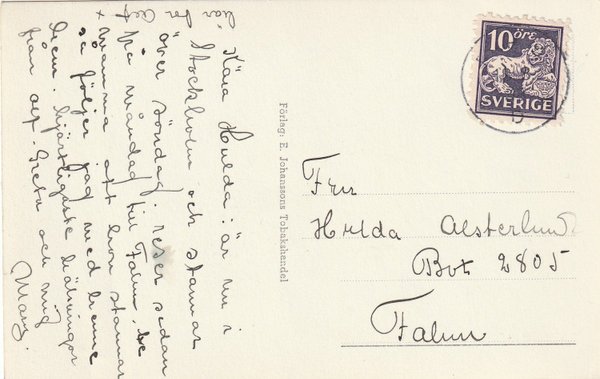 Kära Hulda: är nu i
Stockholm och stannar
över söndag. reser sedan
på måndag till Falun. be
mamma att hon stannar
så följer jag med henne
hem. hjärtligaste hälsningar
från oss. Greta och mig
Mary.
där för
Förlag: E. Johanssons Tobakshandel
10 ÖRE
SVERIGE
Fru
Hulda Alsterlund
Box 2805
Falun